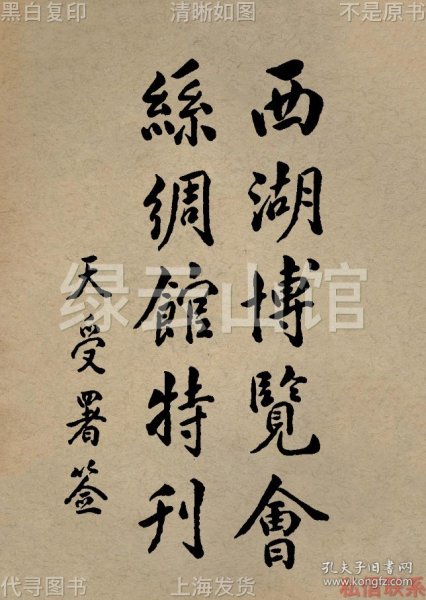 黑白复印 清晰如图 不是原书
西湖博覽會
絲綢館特刊
天受署签
绿云山馆
代寻图书 上海发货 私信联系
孔夫子旧书网
www.kongfz.com